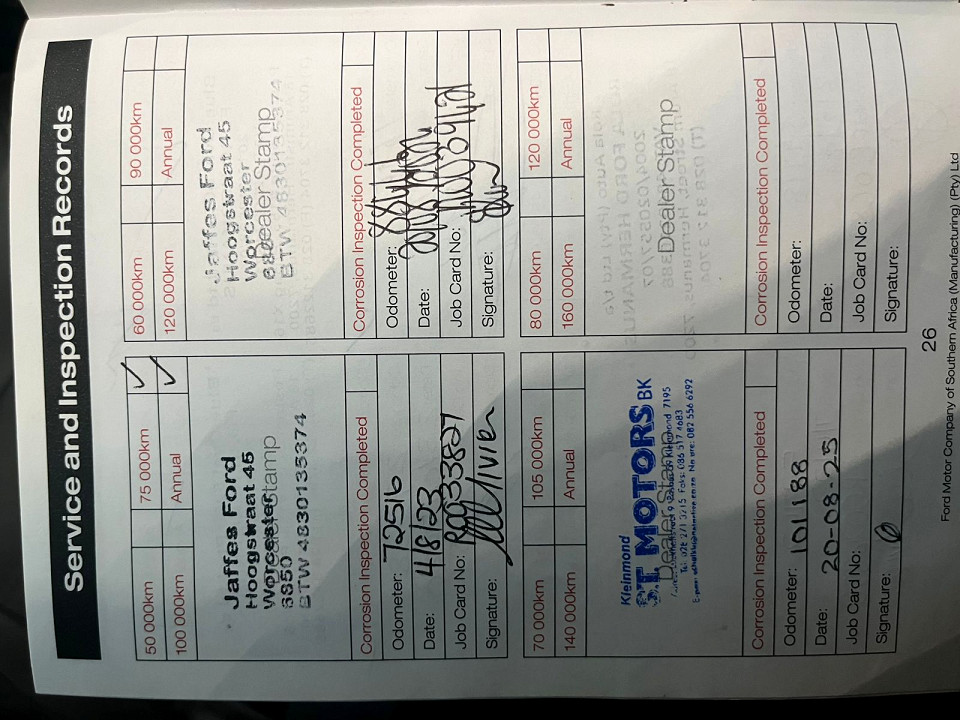 Service and Inspection Records
50 000km 75 000km ✓
100 000km Annual ✓
Jaffes Ford
Hoogstraat 45
Worcester
Dealer Stamp
6850
BTW 4830135374
Corrosion Inspection Completed
Odometer: 72516
Date: 4/8/23
Job Card No:
Signature:
60 000km 90 000km
120 000km Annual
Jaffes Ford
Hoogstraat 45
Worcester
Dealer Stamp
BTW 4830135374
Corrosion Inspection Completed
Odometer:
Date:
Job Card No:
Signature:
70 000km 105 000km
140 000km Annual
Kleinmond
MOTORS BK
Dealer Stamp
Kleinmond 7195
Corrosion Inspection Completed
Odometer: 101188
Date: 20-08-25
Job Card No:
Signature:
80 000km 120 000km
160 000km Annual
Dealer Stamp
Corrosion Inspection Completed
Odometer:
Date:
Job Card No:
Signature:
26
Ford Motor Company of Southern Africa (Manufacturing) (Pty) Ltd